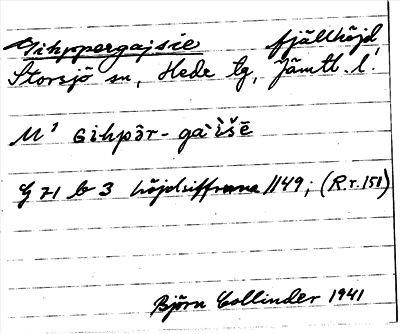 Gihppergajsie fjällhöjd,
Storsjö sn, Hede tg, Jämtl. l.
M' Gihpȯr-gai̇̀šē
G 71 b 3 höjdsiffrorna 1149; (R.r. 151)
Björn Collinder 1941